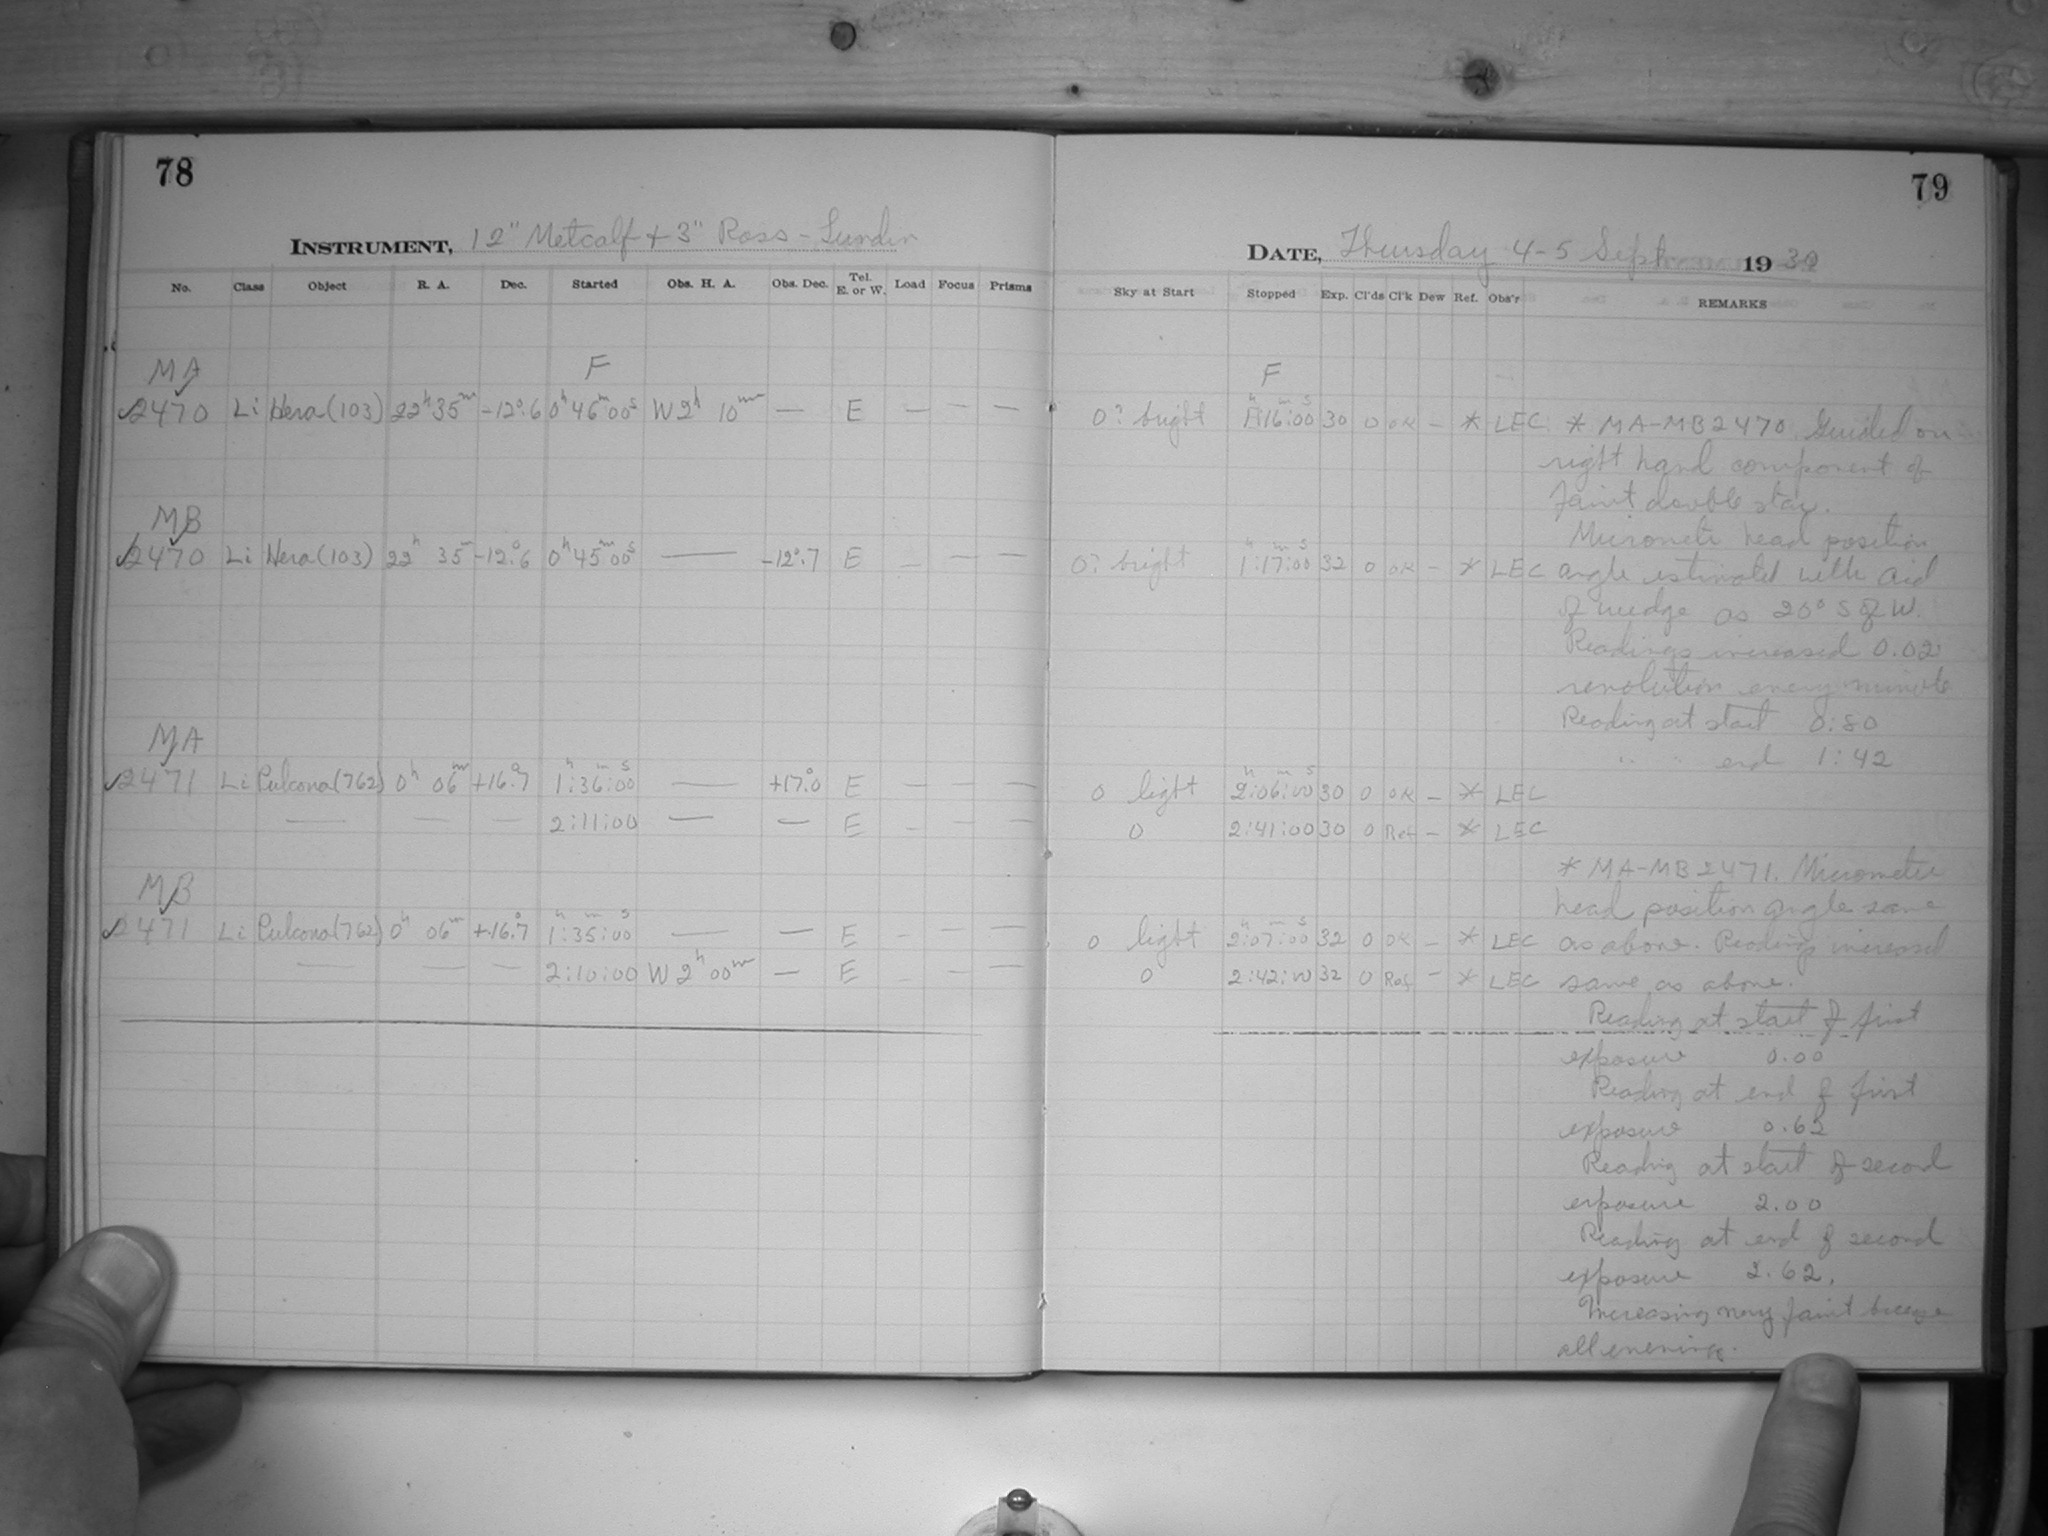 78
INSTRUMENT, 12" Metcalf + 3" Ross-Lundin
No. Class Object R. A. Dec. Started Obs. H. A. Obs. Dec. Tel. E. or W. Load Focus Prisms
MA F
2470 Li Hera (103) 22h 35m -12°.6 0h 46m 00s W 2h 10m — E — — —
MB
2470 Li Hera (103) 22h 35m -12°.6 0h 45m 00s — -12°.7 E — — —
MA
2471 Li Pulcova (762) 0h 06m +16°.7 1h:36m:00s — +17°.0 E — — —
— — — 2:11:00 — — E — — —
MB
2471 Li Pulcova (762) 0h 06m +16°.7 1h:35m:00s — — E — — —
— — — 2:10:00 W 2h 00m — E — — —
79
DATE, Thursday 4-5 September 1930
Sky at Start Stopped Exp. Cl'ds Cl'k Dew Ref. Obs'r REMARKS
F
0? bright 1h:16m:00s 30 0 OK - * LEC * MA-MB2470. Guided on
right hand component of
faint double star.
Micrometer head position
0? bright 1h:17m:00s 32 0 OK - * LEC angle estimated with aid
of wedge as 20° S of W.
Readings increased 0.02
revolution every minute
Reading at start 0:80
" " end 1:42
0 light 2h:06m:00s 30 0 OK - * LEC
0 2:41:00 30 0 Ref - * LEC
* MA-MB2471. Micrometer
head position angle same
0 light 2h:07m:00s 32 0 OK - * LEC as above. Readings increased
0 2:42:00 32 0 Ref - * LEC same as above.
Reading at start of first
exposure 0.00
Reading at end of first
exposure 0.62
Reading at start of second
exposure 2.00
Reading at end of second
exposure 2.62.
Increasing very faint breeze
all evening.